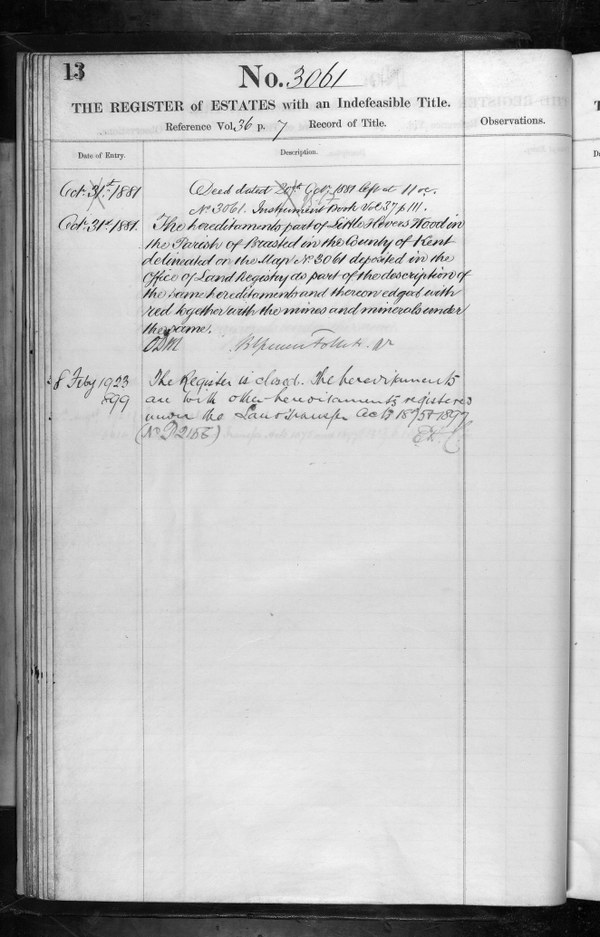 13
No. 3061
THE REGISTER of ESTATES with an Indefeasible Title.
Reference Vol. 36 p. 7 Record of Title.
Observations.
Date of Entry.
Description.
Oct. 31st 1881
Deed dated 20th Octr 1881 left at 11 oc.
No 3061. Instrument Book Vol 37 p 111.
Oct. 31st 1881.
The hereditaments part of Little Hevers Wood in
the Parish of Brasted in the County of Kent
delineated on the Map No 3061 deposited in the
Office of Land Registry as part of the description of
the same hereditaments and thereon edged with
red together with the mines and minerals under
the same.
8 Feby 1923
The Register is closed. The hereditaments
are with other hereditaments registered
under the Land Transfer Acts 1875 & 1897